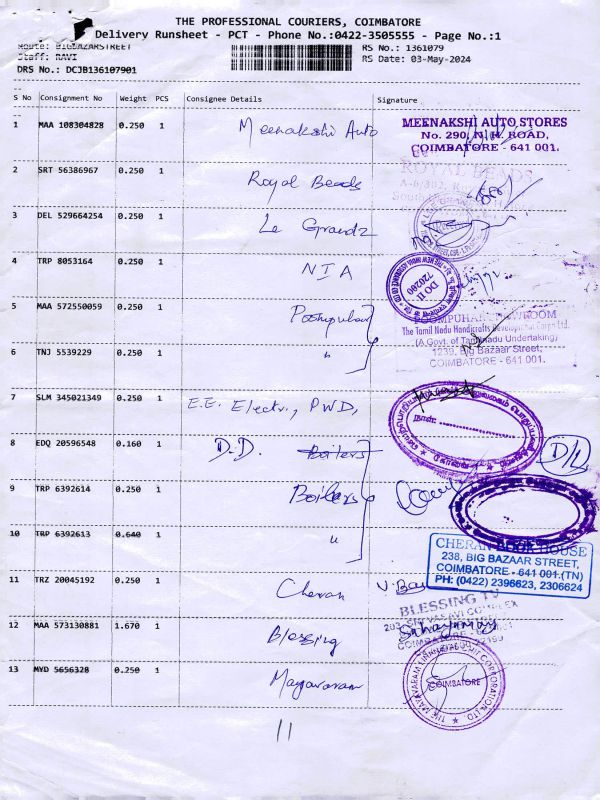 THE PROFESSIONAL COURIERS, COIMBATORE
Delivery Runsheet - PCT - Phone No.:0422-3505555 - Page No.:1
Route: BIGBAZARSTREET RS No.: 1361079
Staff: RAVI RS Date: 03-May-2024
DRS No.: DCJB136107901
S No Consignment No Weight PCS Consignee Details Signature
1 MAA 108304828 0.250 1 Meenakshi Auto
MEENAKSHI AUTO STORES
No. 290, N.H. ROAD,
COIMBATORE - 641 001.
2 SRT 56386967 0.250 1 Royal Beads
ROYAL BEADS
3 DEL 529664254 0.250 1 Le Grandz
4 TRP 8053164 0.250 1 NIA
DO II
720200
5 MAA 572550059 0.250 1 Poompuhar
POOMPUHAR SHOWROOM
The Tamil Nadu Handicrafts Development Corpn Ltd.
(A Govt. of Tamilnadu Undertaking)
1239, Big Bazaar Street,
COIMBATORE - 641 001.
6 TNJ 5539229 0.250 1 "
7 SLM 345021349 0.250 1 E.E. Electr., PWD,
8 EDQ 20596548 0.160 1 D.D. Boilers
9 TRP 6392614 0.250 1 Boilers
10 TRP 6392613 0.640 1 "
CHERAN BOOK HOUSE
238, BIG BAZAAR STREET,
COIMBATORE - 641 001.(TN)
PH: (0422) 2396623, 2306624
11 TRZ 20045192 0.250 1 Cheran
BLESSING TV
12 MAA 573130881 1.670 1 Blessing
13 MYD 5656328 0.250 1 Mayavaram
COIMBATORE
11